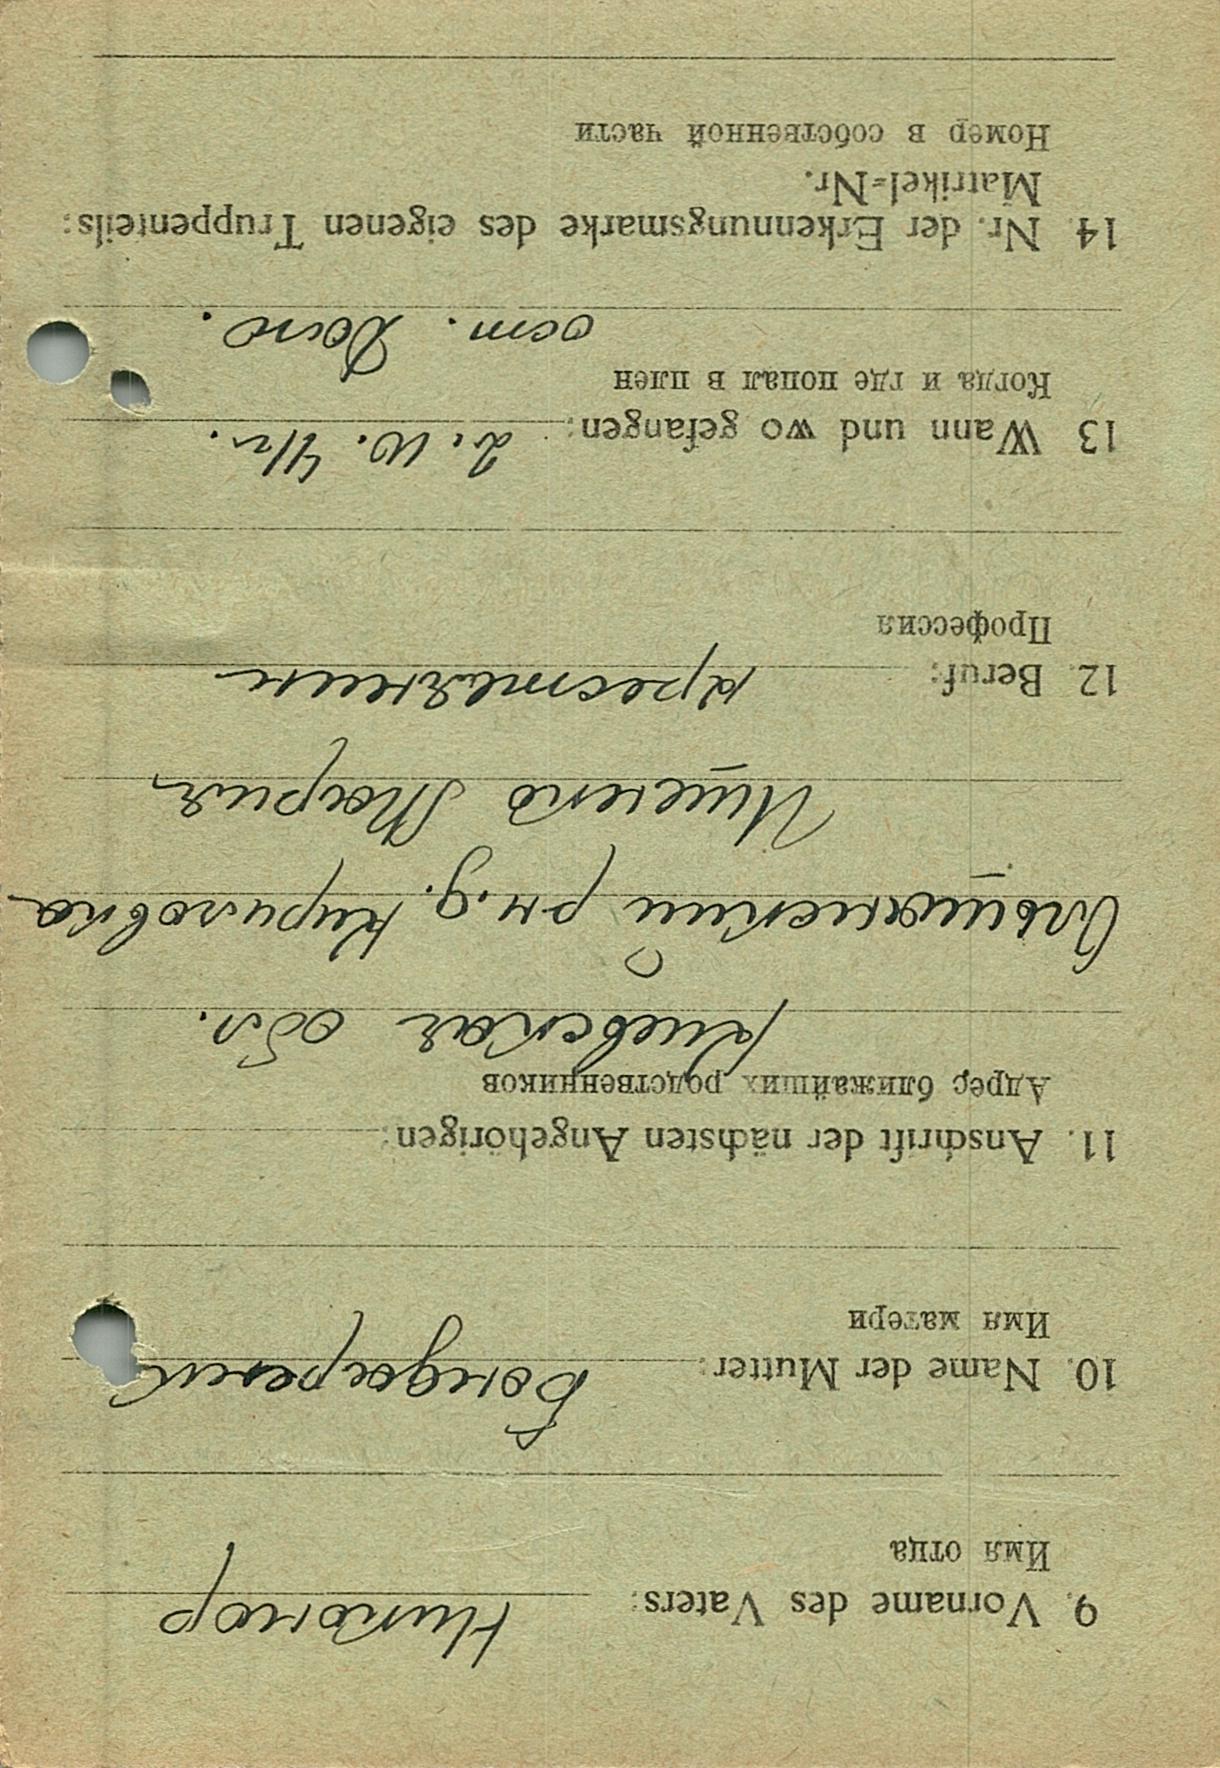 9. Vorname des Vaters: Никонор
Имя отца
10. Name der Mutter: Бондаренк
Имя матери
11. Anschrift der nächsten Angehörigen:
Адрес ближайших родственников
Киевская обл.
Ольшанский рн. д. Кириловка
Ищенко Мария
12. Beruf: крестьянин
Профессия
13 Wann und wo gefangen:
Когда и где попал в плен
ост. Даго.
14. Nr. der Erkennungsmarke des eigenen Truppenteils:
Matrikel=Nr.
Номер в собственной части